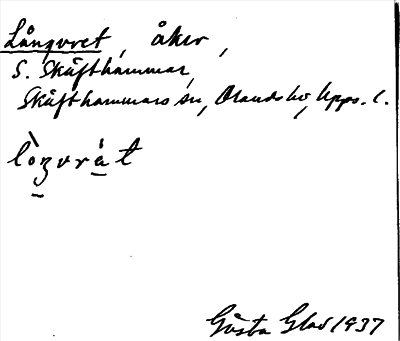 Långvret, åker,
S. Skäfthammar,
Skäfthammars sn, Olands hd, Upps. l.
lòŋvrå̀t
Gösta Glad 1937